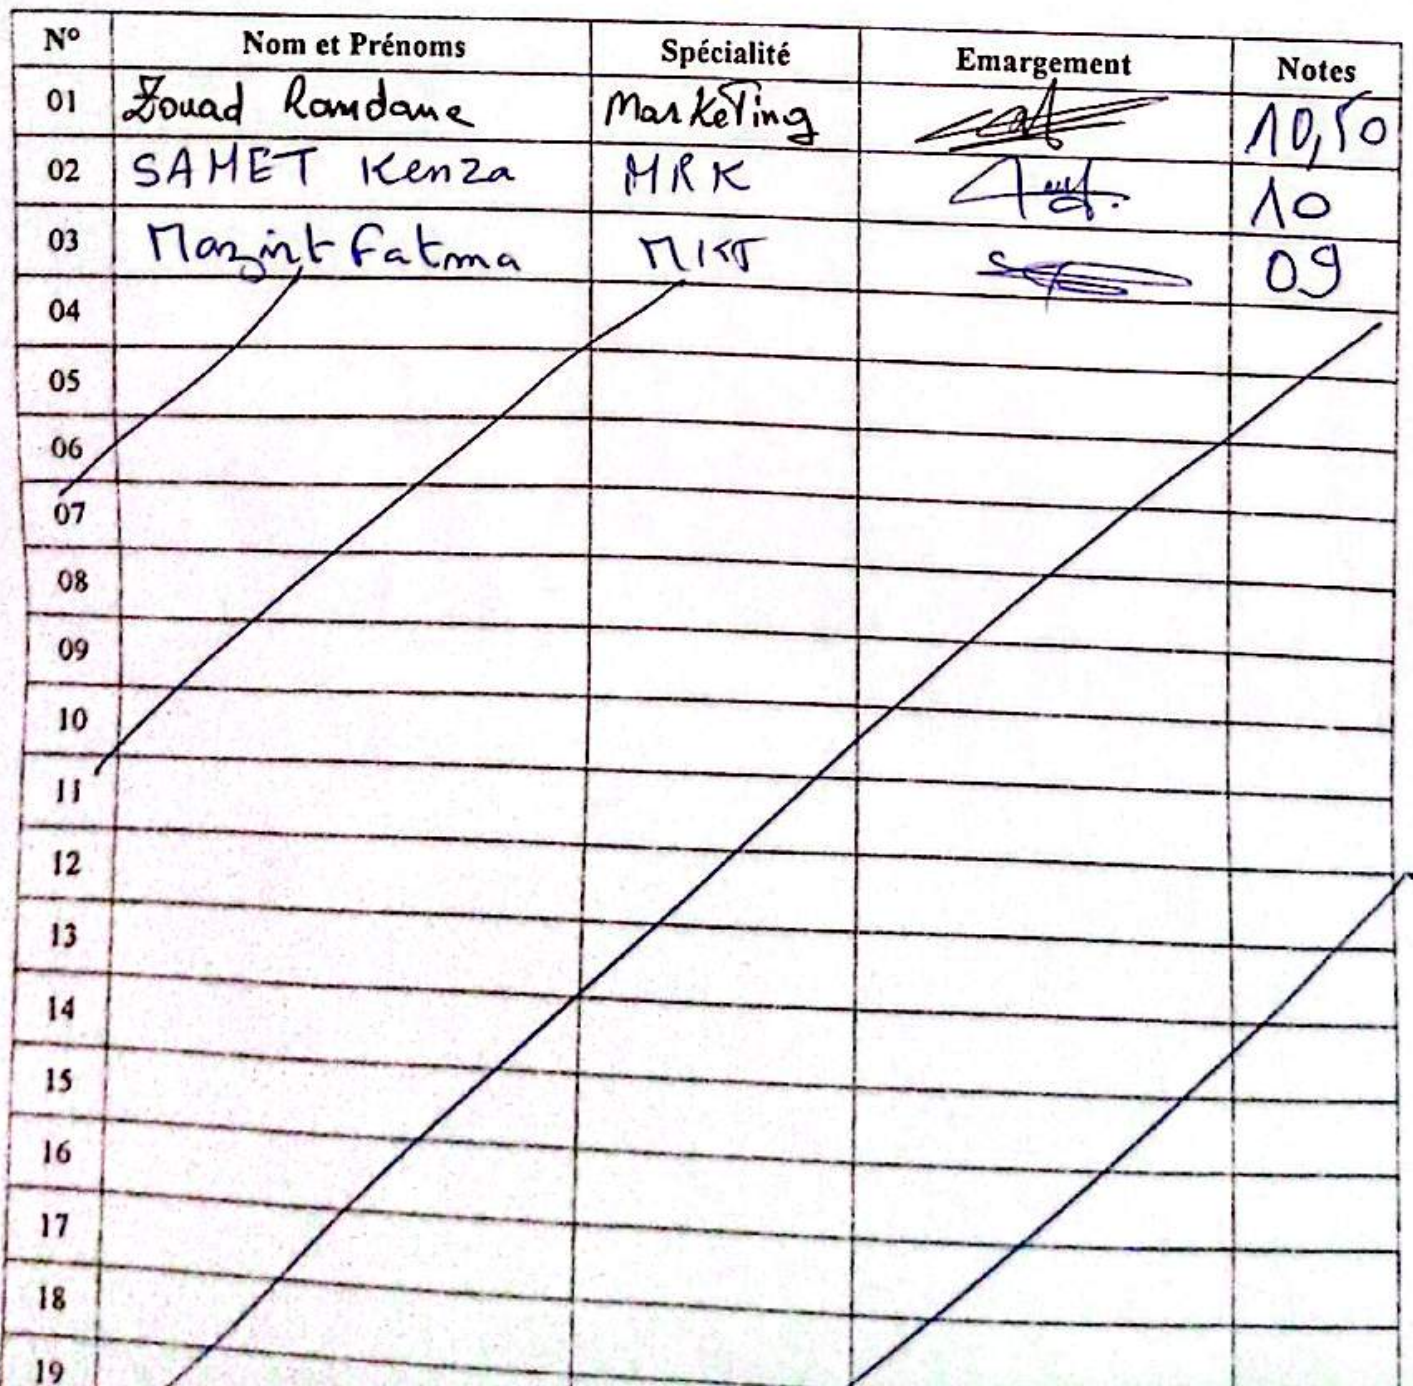 N° Nom et Prénoms Spécialité Emargement Notes
01 Zouad Ramdane Marketing 10,50
02 SAMET Kenza MRK 10
03 Mazirt Fatma MKT 09
04
05
06
07
08
09
10
11
12
13
14
15
16
17
18
19